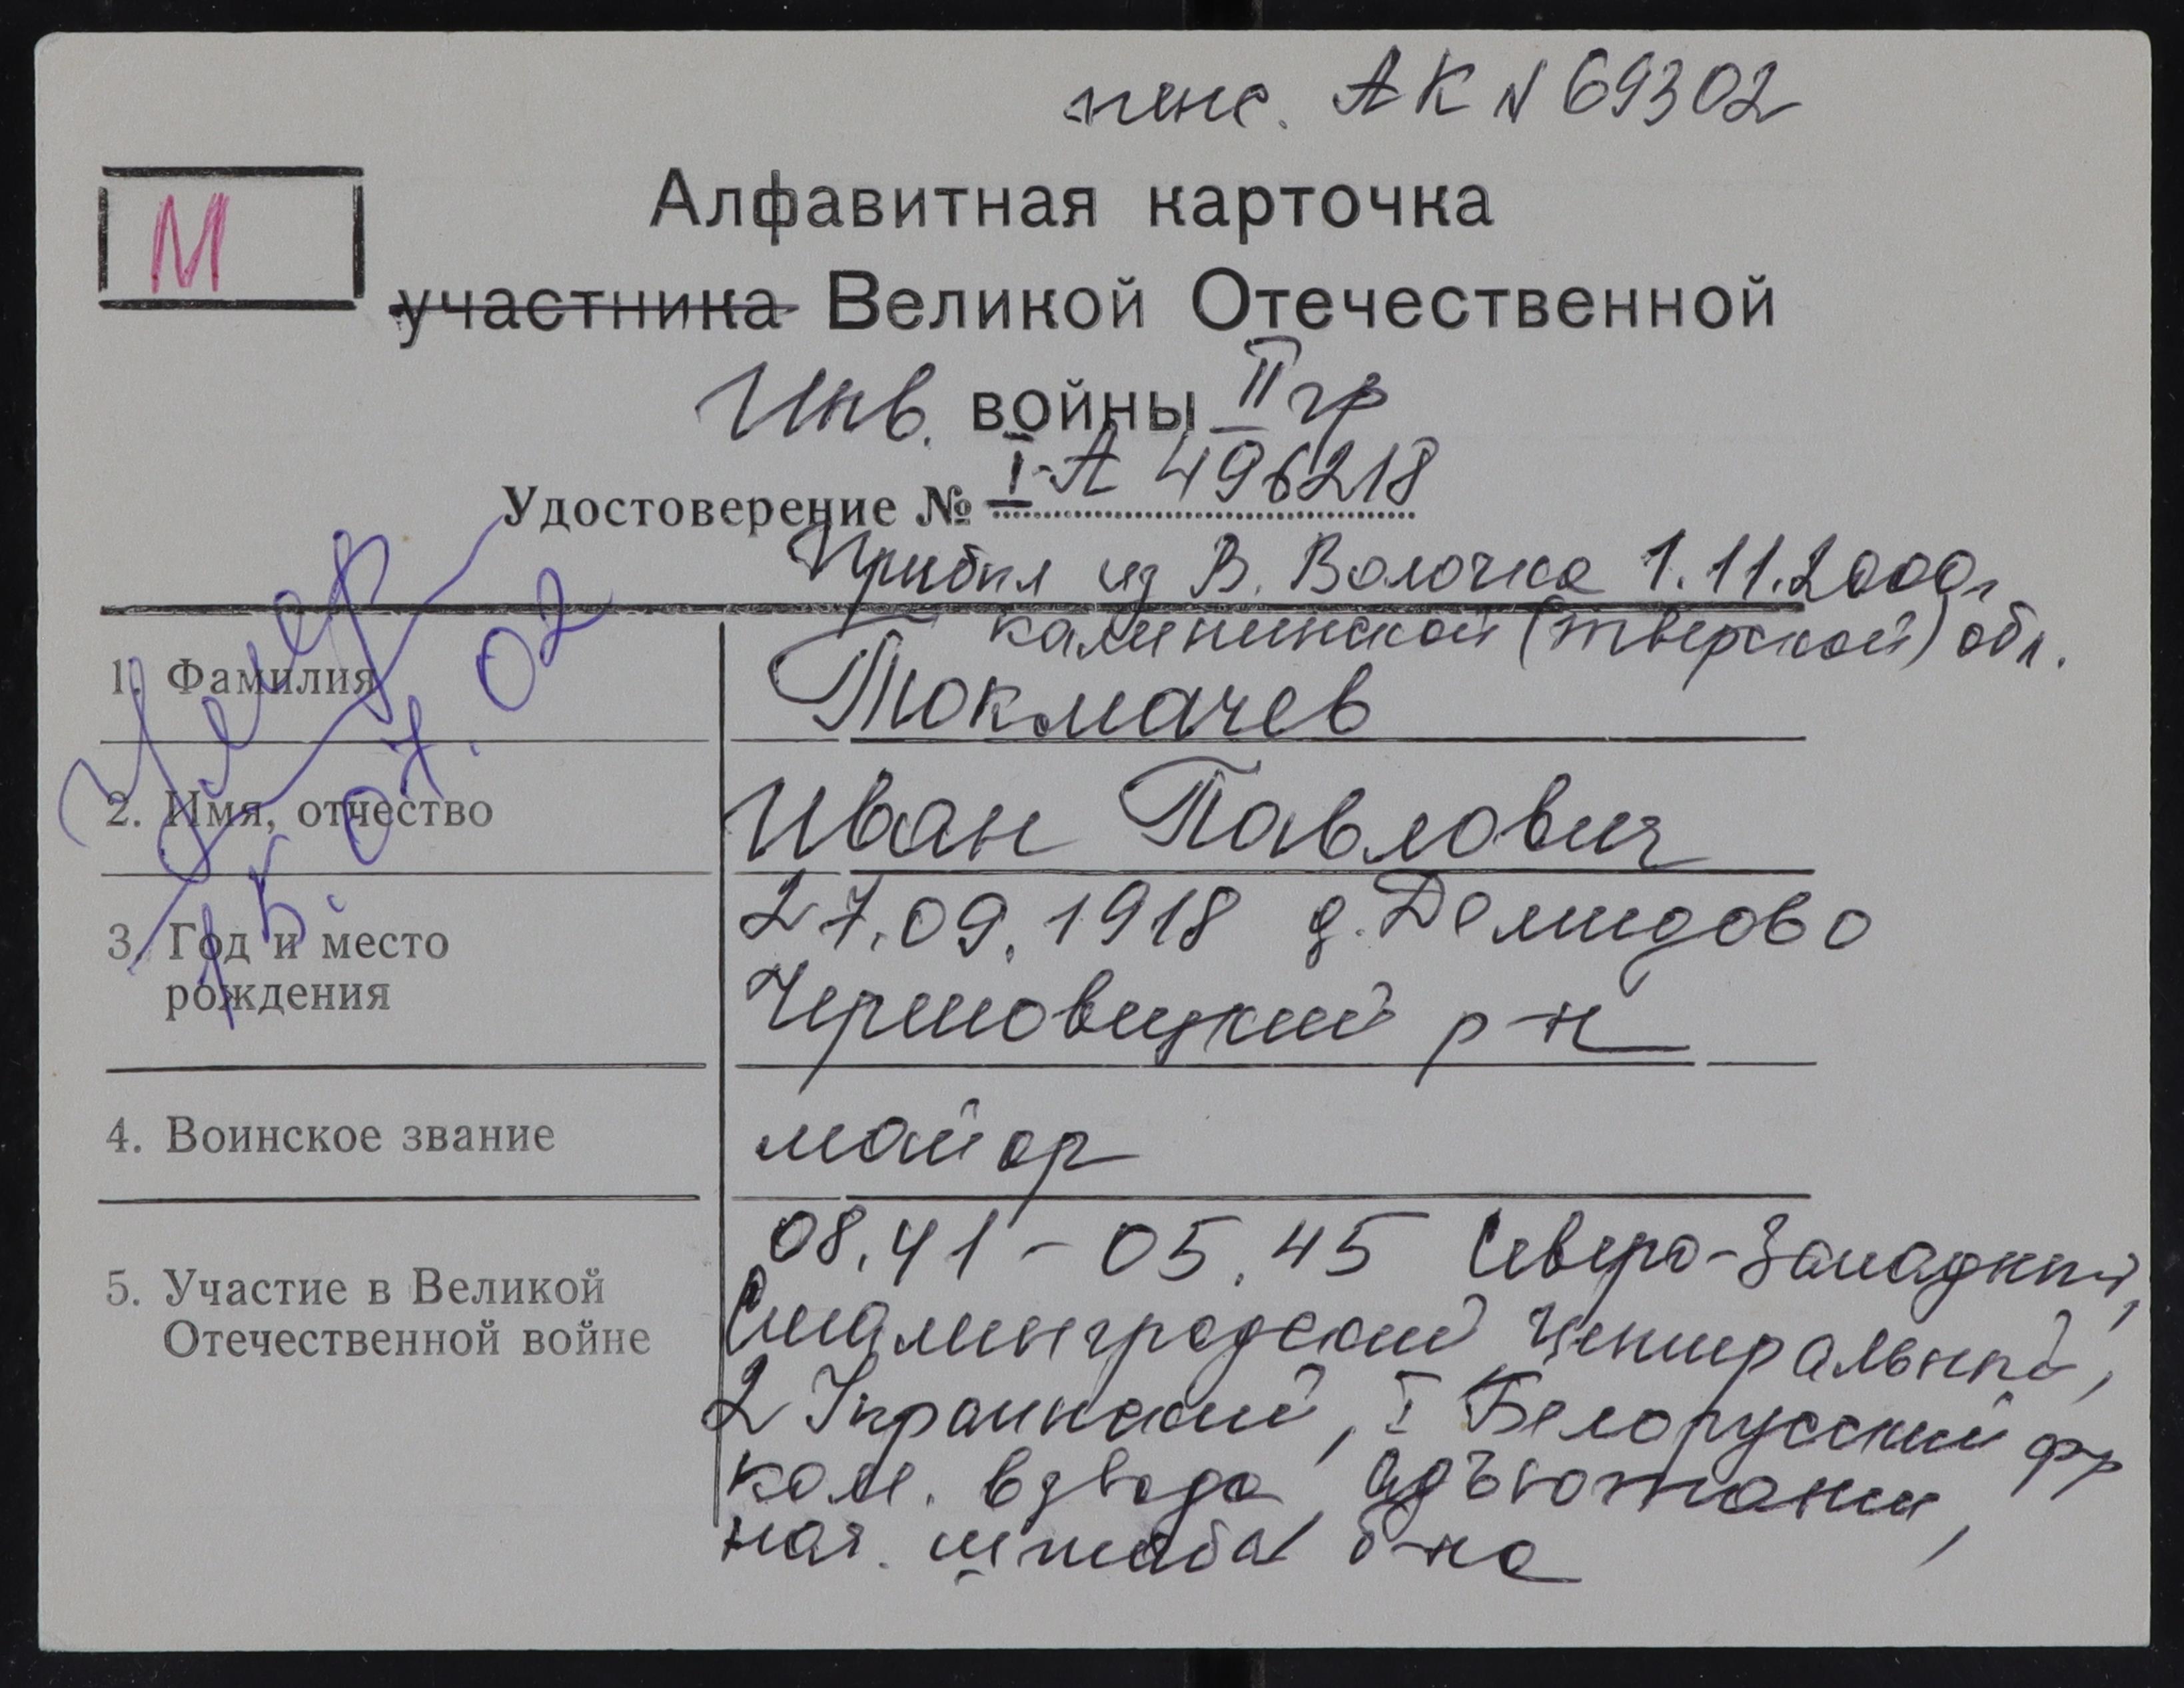 пенс. АК N 69302
М
Алфавитная карточка
участника Великой Отечественной
Инв. войны II гр
Удостоверение № I-А 496218
Прибыл из В. Волочка 1.11.2000г
калининской (тверской) обл.
1. Фамилия Токмачев
2. Имя, отчество Иван Павлович
3. Год и место рождения 27.09.1918 д. Демидово
Черновицкий р-н
4. Воинское звание майор
5. Участие в Великой Отечественной войне 08.41 - 05.45 Северо-Западный,
Сталинградский Центральный,
2 Украинский, I Белорусский фр
ком. взвода, адъютант,
нач. штаба б-на
Умер
15.07.02